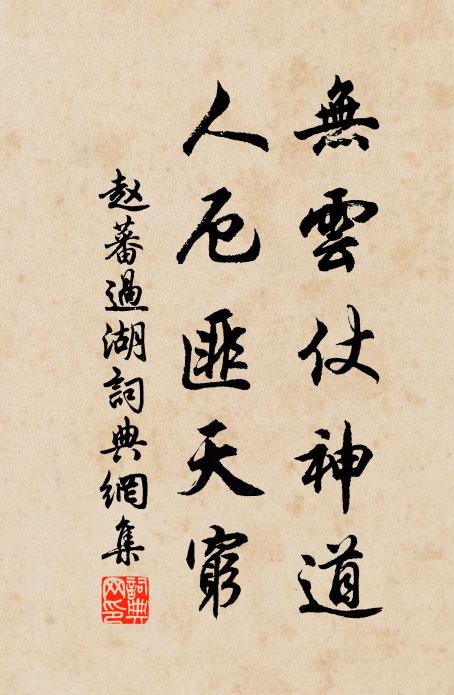 無雲仗神道
人厄匪天窮
赵蕃過湖詞典網集
詞典網印